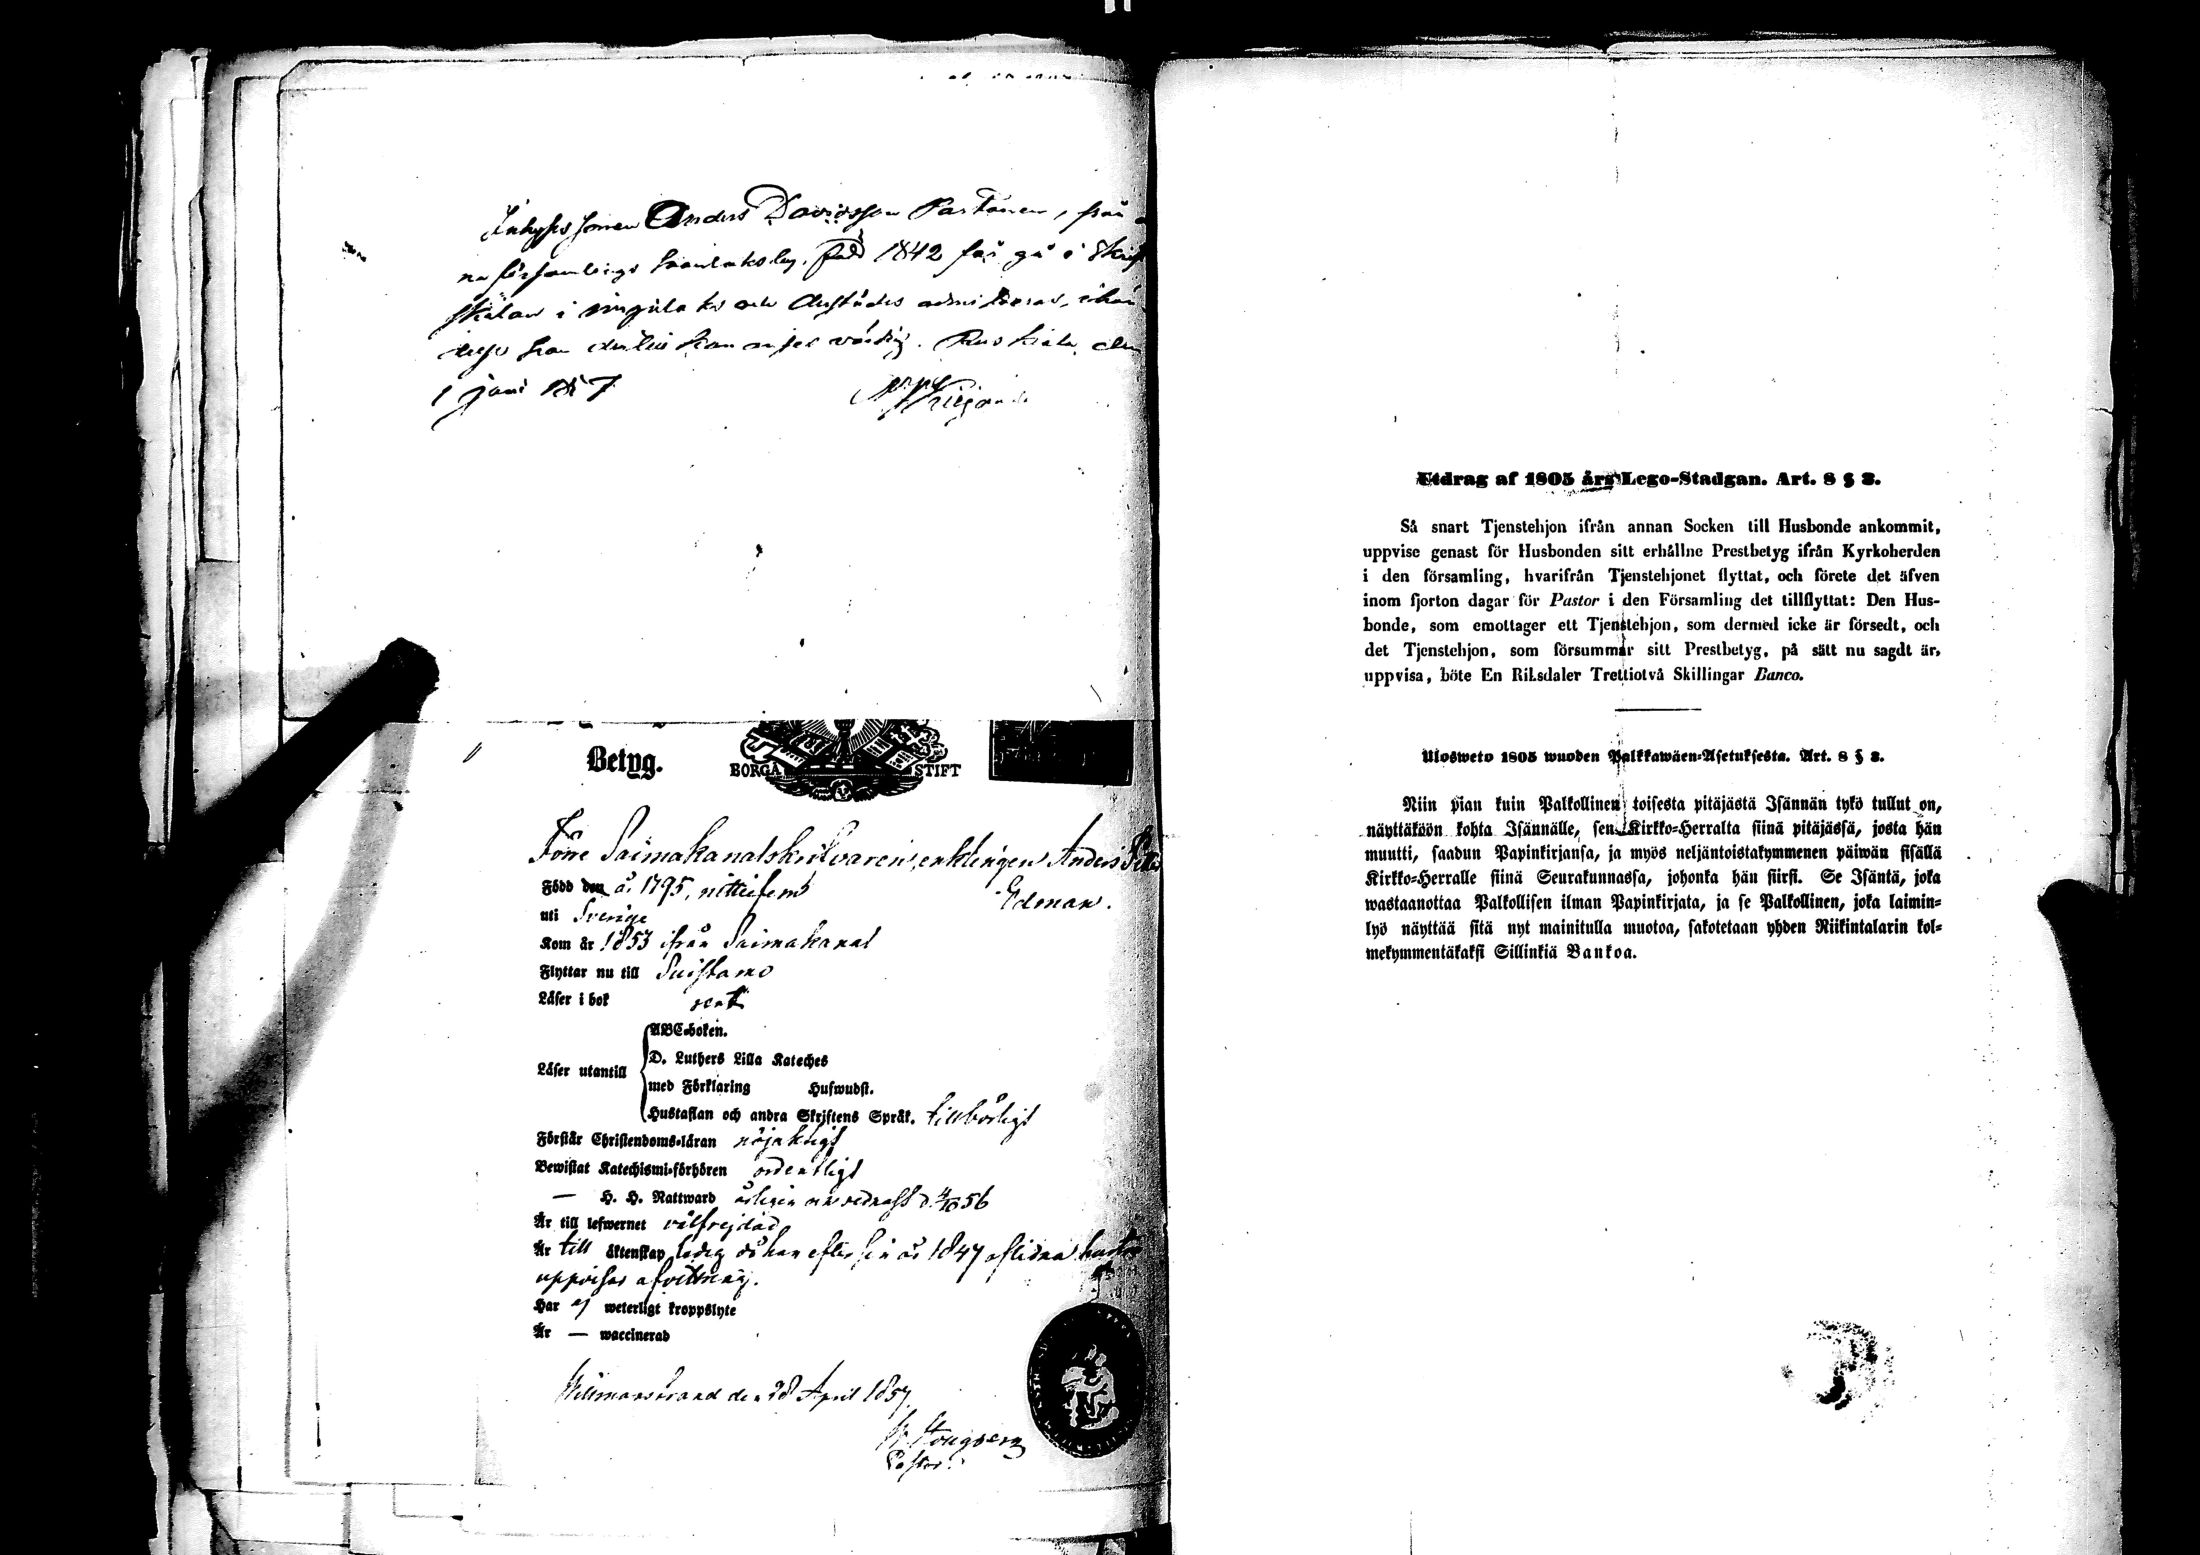 Inhyses sonen Anders Davidsson Partanen, från
na församlings Saarlaksby, född 1842 får gå i Skrift
skolan i Impilaks och derstädes admitteras, ihän
delse han dertill kan anses värdig. Ruskiala den
1 juni 1857
Betyg.
BORGÅ STIFT
Förre Saimakanalskrifvaren, enklingen Anders
Född den år 1795, nittifem Edman.
uti Sverige
Kom år 1853 ifrån Saimakanal
Flyttar nu till Suistamo
Läser i bok rent
Läser utantill
ABC-boken.
D. Luthers Lilla Kateches
med Förklaring Hufwudst.
Hustaflan och andra Skriftens Språk. tillbörligt
Förstår Christendoms-läran nöjaktigt
Bewistat Katechismi-förhören ordentligt
— H. H. Nattward årligen 56
Är till lefwernet välfrejdad
Är till äktenskap ledig då han efter sin år 1847 aflidna hustru
uppvisar afvittring.
Har ej weterligt kroppslyte
Är — waccinerad
Willmanstrand den 28 April 1857.
Pastor.
Utdrag af 1805 års Lego-Stadgan. Art. 8 § 3.
Så snart Tjenstehjon ifrån annan Socken till Husbonde ankommit,
uppvise genast för Husbonden sitt erhållne Prestbetyg ifrån Kyrkoherden
i den församling, hvarifrån Tjenstehjonet flyttat, och förete det äfven
inom fjorton dagar för Pastor i den Församling det tillflyttat: Den Hus-
bonde, som emottager ett Tjenstehjon, som dermed icke är försedt, och
det Tjenstehjon, som försummar sitt Prestbetyg, på sätt nu sagdt är,
uppvisa, böte En Riksdaler Trettiotvå Skillingar Banco.
Ulosweto 1805 wuoden Palkkawäen-Asetuksesta. Art. 8 § 3.
Niin pian kuin Palkollinen toisesta pitäjästä Isännän tykö tullut on,
näyttäköön kohta Isännälle, sen Kirkko-Herralta siinä pitäjässä, josta hän
muutti, saadun Papinkirjansa, ja myös neljäntoistakymmenen päiwän sisällä
Kirkko-Herralle siinä Seurakunnassa, johonka hän siirsi. Se Isäntä, joka
wastaanottaa Palkollisen ilman Papinkirjata, ja se Palkollinen, joka laimin-
lyö näyttää sitä nyt mainitulla muotoa, sakotetaan yhden Riikintalarin kol-
mekymmentäkaksi Sillinkiä Bankoa.